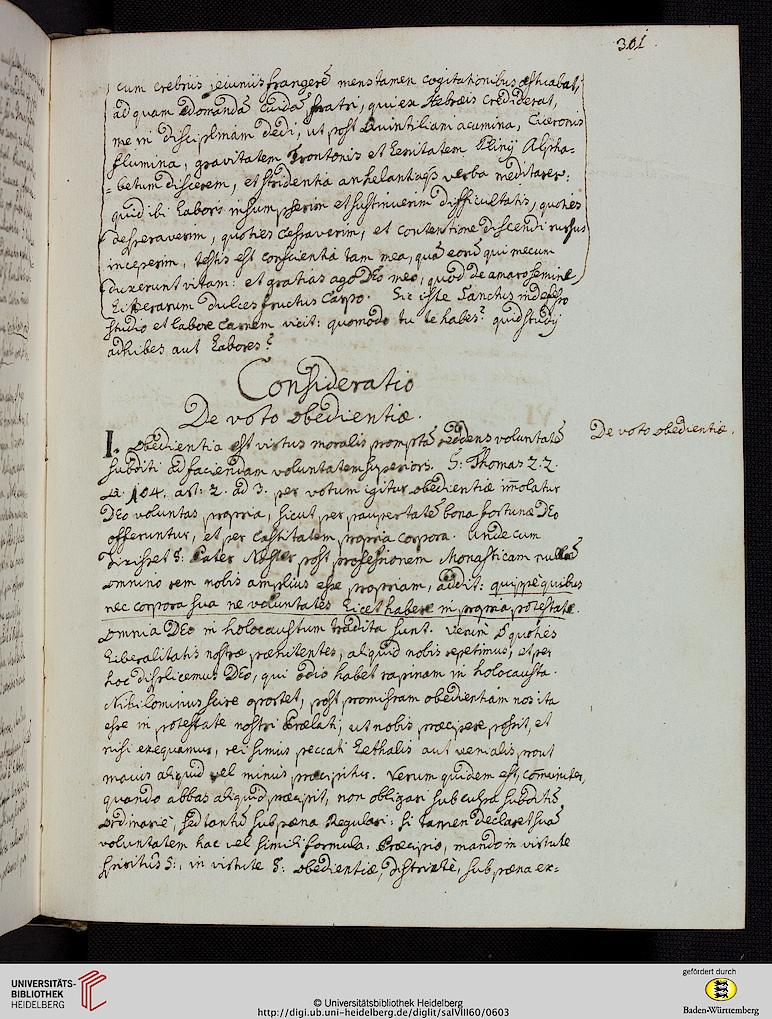 301
cum crebris jejuniis frangerē mens tamen cogitationibus æstuabat,
ad quam edomandā cuidā fratri, qui ex Hebræis crediderat,
me in disciplinam dedi, ut post Quintiliani acumina, Ciceronis
flumina, gravitatem Frontonis et lenitatem Plinij Alpha=
=betum discerem, et stridentia anhelantiaqs verba meditarer:
quid ibi laboris insumpserim et sustinuerim difficultatis, quoties
desperaverim, quoties cessaverim, et contentione discendi rursus
inceperim, testis est conscientia tam mea, quā eorū qui mecum
duxerunt vitam: et gratias ago Deo meo, quod de amaro semine
litterarum dulces fructus carpo. Sic iste Sanctus indefesso
studio et labore carnem vicit: quomodo tu te habes? quid studij
adhibes aut labores?
Consideratio
De voto obedientiæ.
De voto obedientiæ.
I. Obedientia est virtus moralis promptā reddens voluntatē
subditi ad faciendam voluntatem superioris. S: Thomas 2. 2.
q. 104. art: 2. ad 3. per votum igitur obedientiæ im̄olatur
DEo voluntas propria, sicut per paupertatē bona fortunæ DEo
offeruntur, et per castitatem propria corpora. Unde cum
dixisset S: Pater Noster post professionem Monasticam nullā
omnino rem nobis amplius esse propriam, addit: quippe quibus
nec corpora sua nec voluntates licet habere in propria potestate.
Omnia DEo in holocaustum tradita sunt. Verum quoties
liberalitatis nostræ pœnitentes, aliquid nobis repetimus, et per
hoc displicemus DEo, qui odio habet rapinam in holocausta.
Nihilominus scire oportet, post promissam obedientiam nos ita
esse in potestate nostri Prælati, ut nobis præcipere possit, et
nisi exequamur, rei simus peccati lethalis aut venialis prout
maius aliquid vel minus præcipitur. Verum quidem est, com̄uniter,
quando abbas aliquid præcipit, non obligari sub culpa subditos
ordinarie, sed tantū sub pœna Regulari: si tamen declaret suā
voluntatem hac vel simili formula. Præcipio, mando in virtute
Spiritus S:, in virtute S: obedientiæ, districtè, sub pœna ex=
UNIVERSITÄTS-
BIBLIOTHEK
HEIDELBERG
© Universitätsbibliothek Heidelberg
http://digi.ub.uni-heidelberg.de/diglit/salVIII60/0603
gefördert durch
Baden-Württemberg